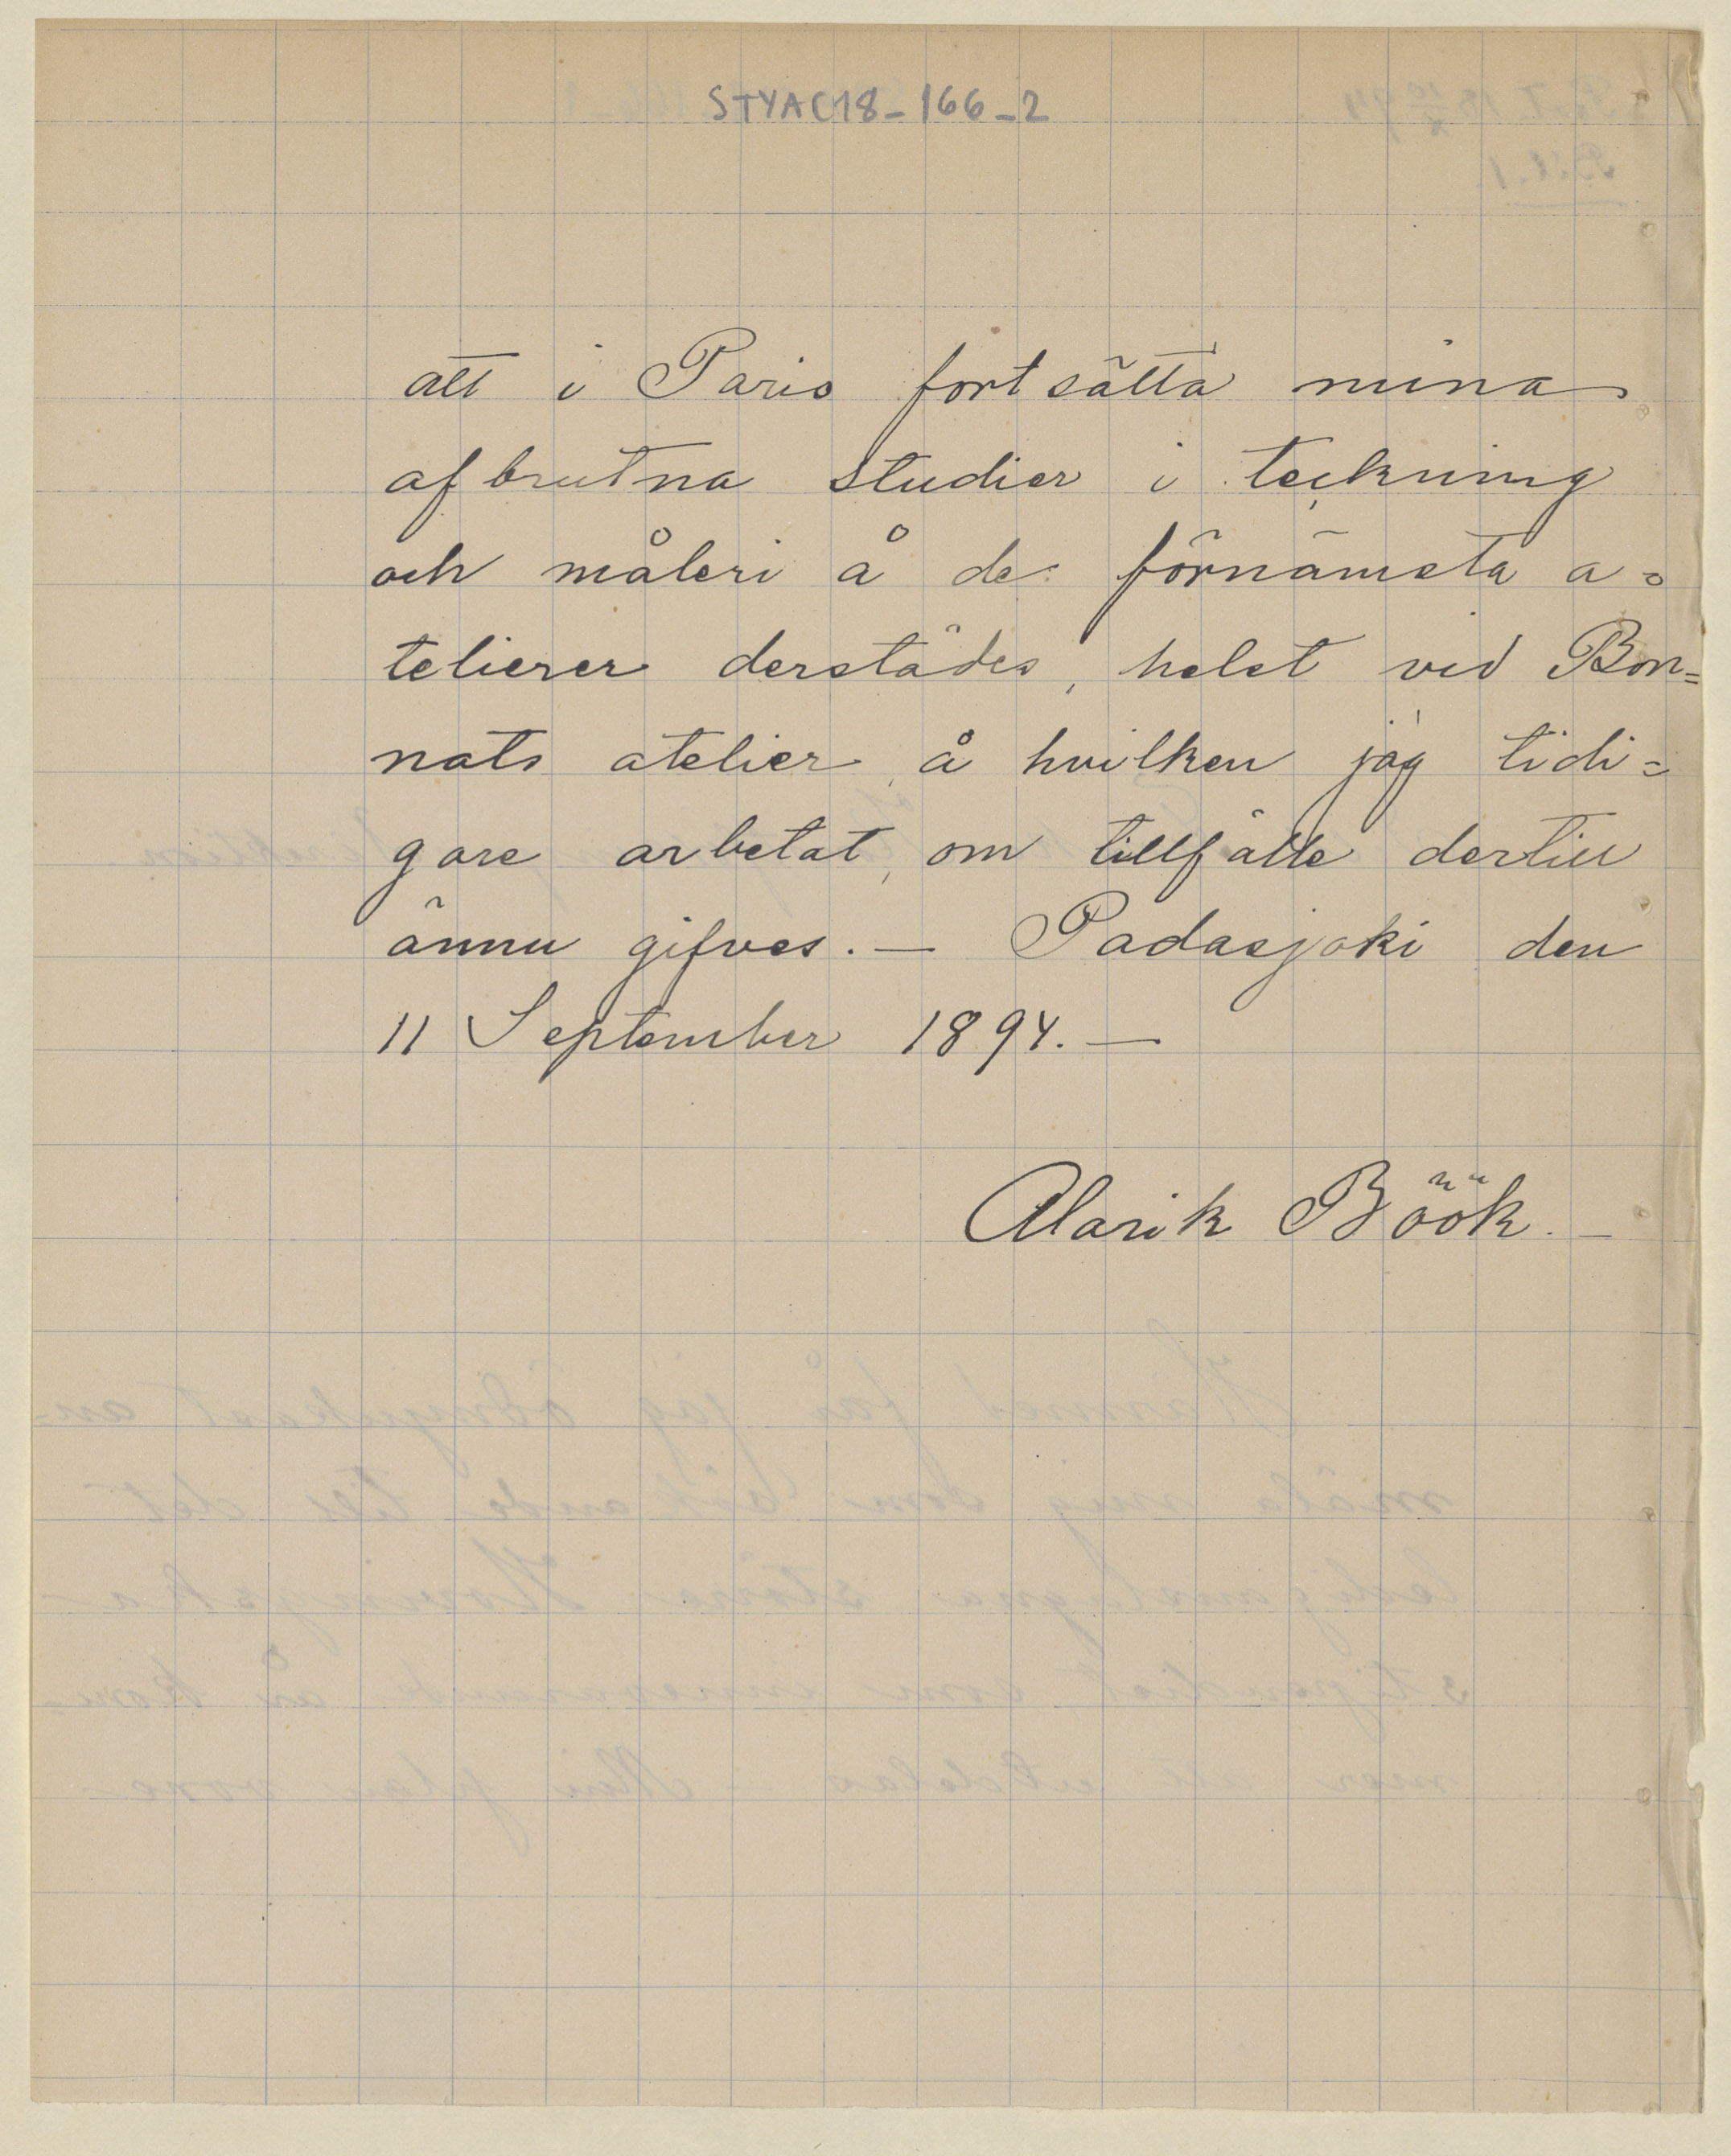 STYAC18-166-2
att i Paris fortsätta mina
afbrutna studier i teckning
och måleri å de förnämsta a=
telierer derstädes, helst vid Bon=
nats atelier, å hvilken jag tidi=
gare arbetat, om tillfälle dertill
ännu gifves. — Padasjoki den
11 September 1894. —
Alarik Böök. —